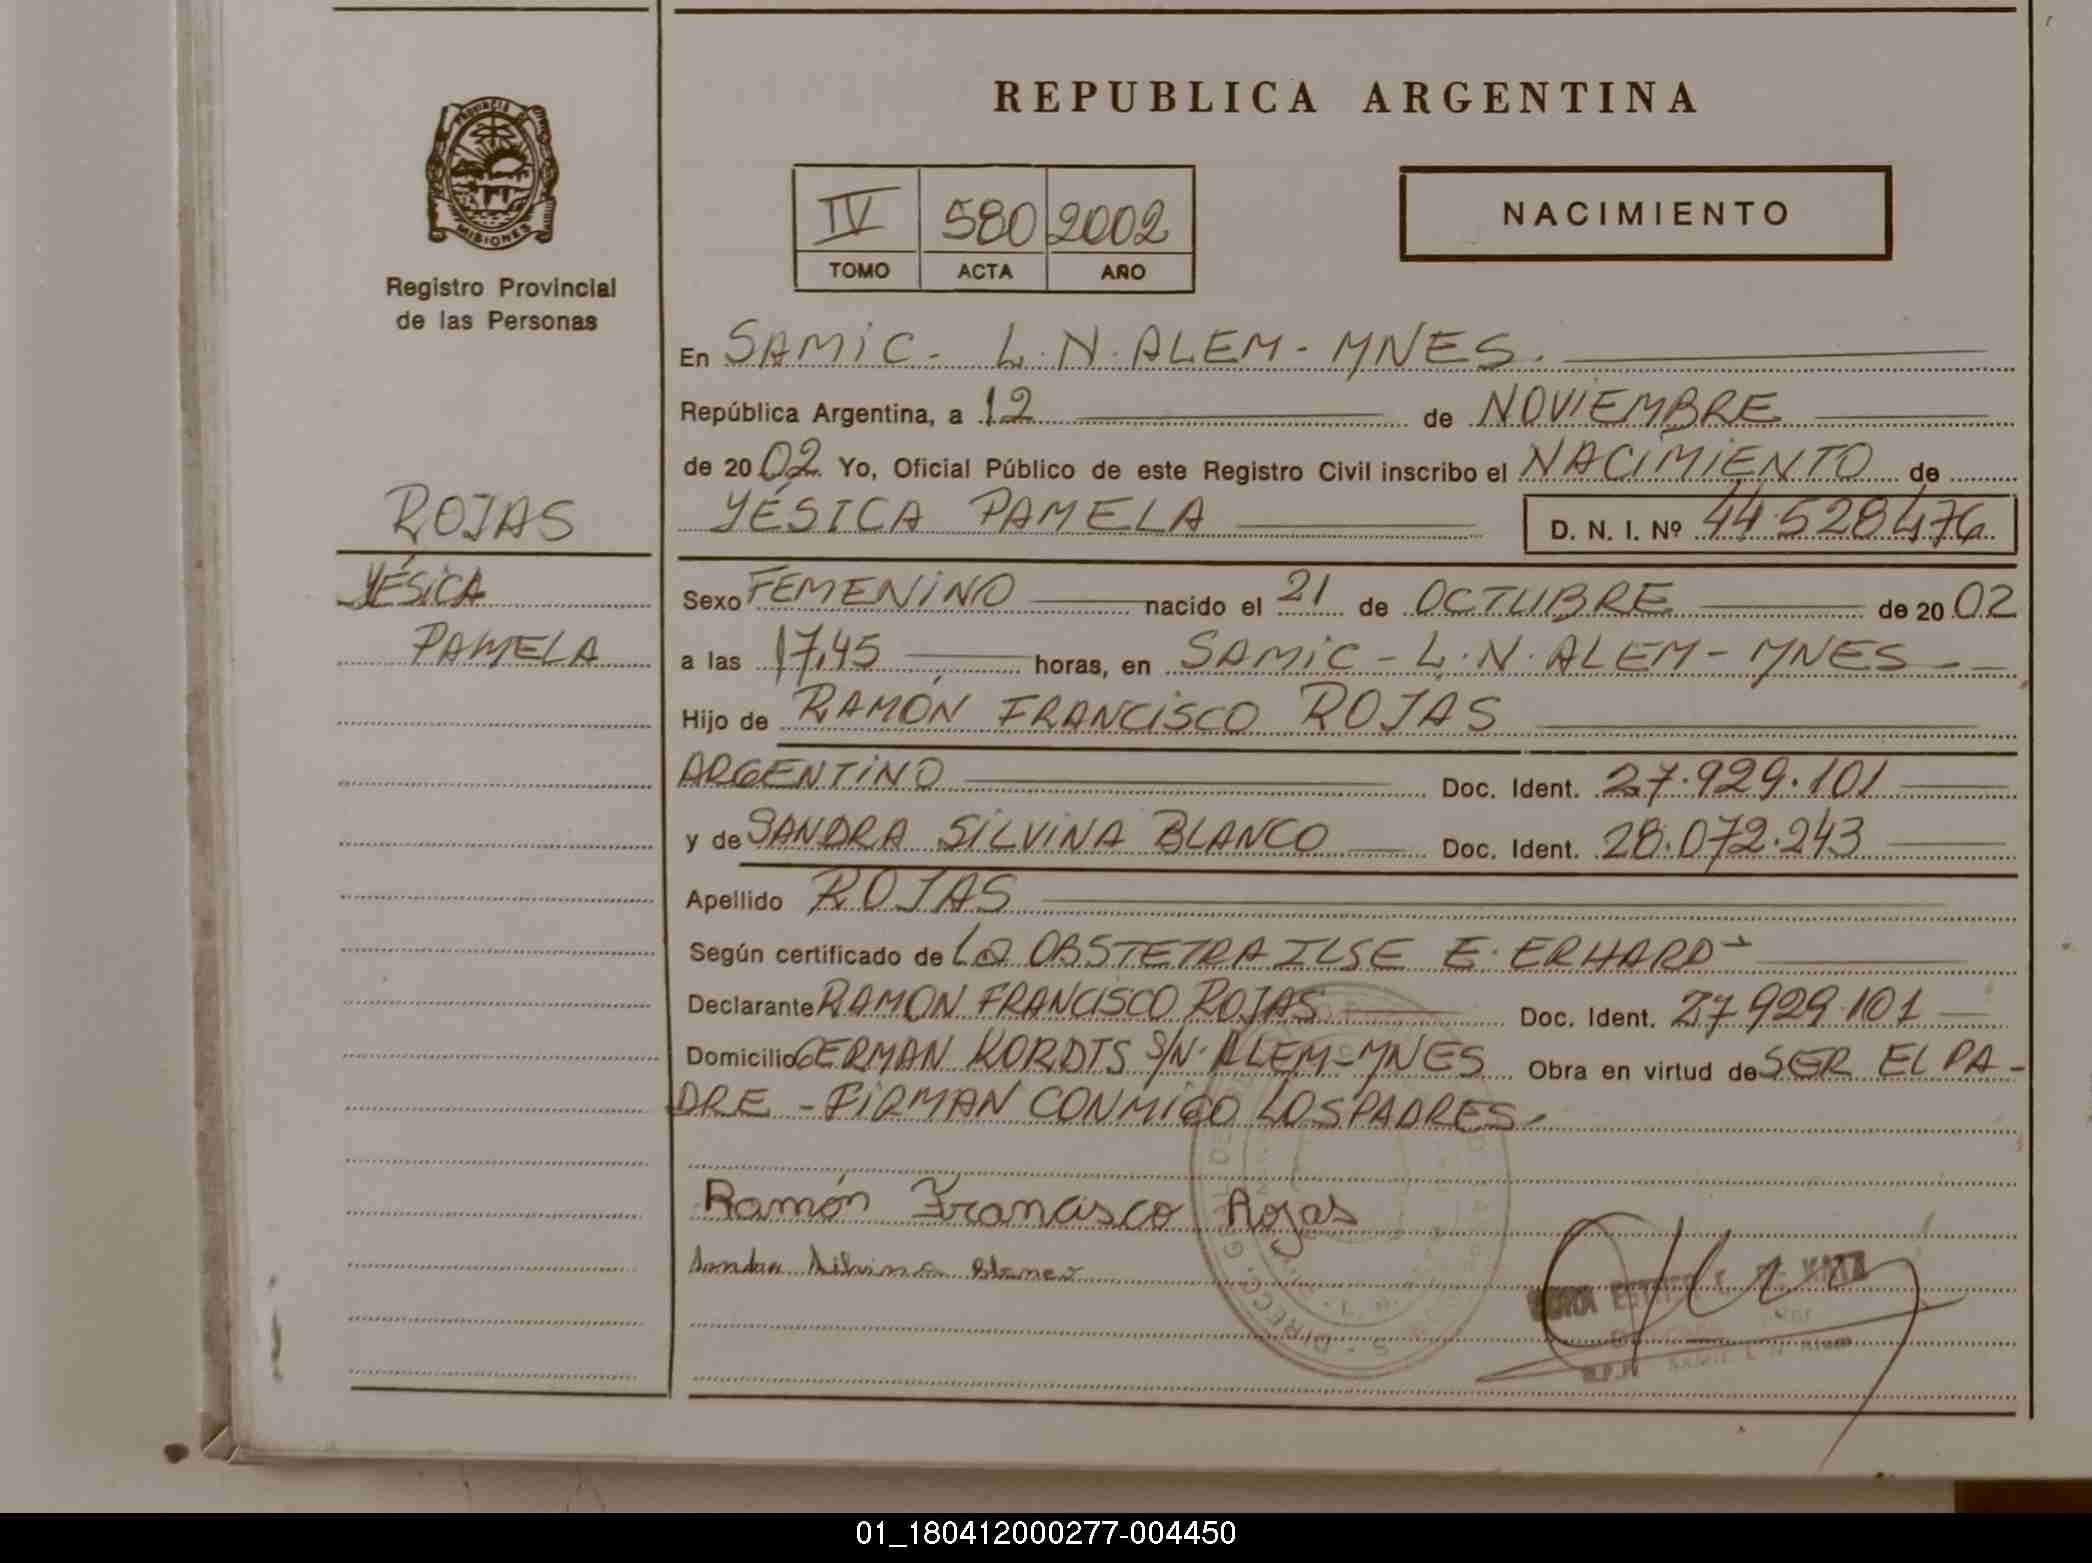 REPUBLICA ARGENTINA
PROVINCIA DE
MISIONES
Registro Provincial
de las Personas
IV 580 2002
TOMO ACTA AÑO
NACIMIENTO
En SAMIC - L.N. ALEM - MNES.
República Argentina, a 12 de NOVIEMBRE
de 2002 Yo, Oficial Público de este Registro Civil inscribo el NACIMIENTO de
YÉSICA PAMELA D. N. I. Nº 44.528476
ROJAS
YÉSICA
PAMELA
Sexo FEMENINO nacido el 21 de OCTUBRE de 2002
a las 17,45 horas, en SAMIC - L.N. ALEM - MNES - -
Hijo de RAMÓN FRANCISCO ROJAS
ARGENTINO Doc. Ident. 27.929.101
y de SANDRA SILVINA BLANCO Doc. Ident. 28.072.243
Apellido ROJAS
Según certificado de LA OBSTETRA ILSE E. ERHARD-
Declarante RAMON FRANCISCO ROJAS Doc. Ident. 27929.101
Domicilio GERMAN KORDTS S/N. ALEM - MNES Obra en virtud de SER EL PA-
DRE - FIRMAN CONMIGO LOS PADRES.-
Ramón Francisco Rojas
Sandra Silvina Blanco
01_180412000277-004450